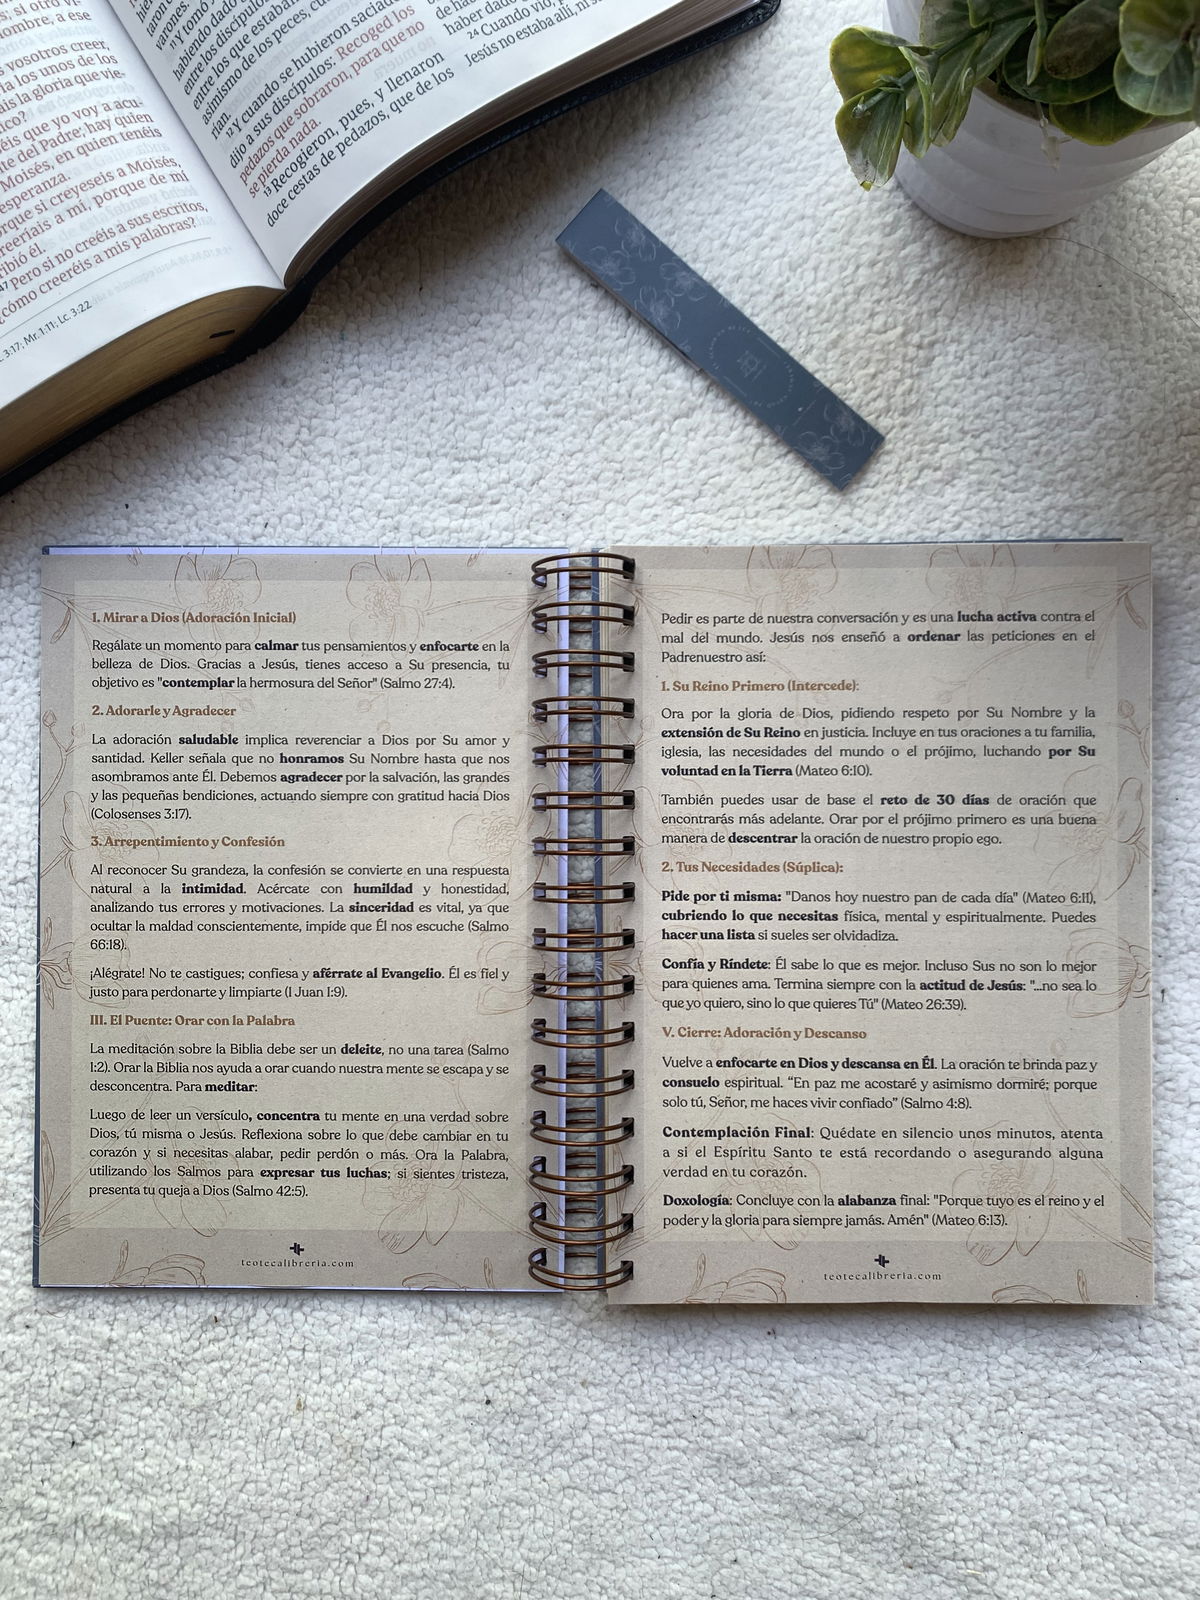 si otro
nombre, a ese
vosotros creer,
los unos de los
la gloria que vie-
que yo voy a acu-
del Padre; hay quien
Moisés, en quien tenéis
esperanza.
porque si creyeseis a Moisés,
a mí, porque de mí
él.
47 Pero si no creéis a sus escritos,
¿cómo creeréis a mis palabras?
3:17; Mr. 1:11; Lc. 3:22
varones.
11 Y tomó
habiendo dado
entre los discípulos
entre los que estaban
asimismo de los peces,
12 Y cuando se hubieron saciado,
dijo a sus discípulos: Recoged los
pedazos que sobraron, para que no
se pierda nada.
13 Recogieron, pues, y llenaron
doce cestas de pedazos, que de los
haber dado
24 Cuando vio,
Jesús no estaba allí, ni
1. Mirar a Dios (Adoración Inicial)
Regálate un momento para calmar tus pensamientos y enfocarte en la
belleza de Dios. Gracias a Jesús, tienes acceso a Su presencia, tu
objetivo es "contemplar la hermosura del Señor" (Salmo 27:4).
2. Adorarle y Agradecer
La adoración saludable implica reverenciar a Dios por Su amor y
santidad. Keller señala que no honramos Su Nombre hasta que nos
asombramos ante Él. Debemos agradecer por la salvación, las grandes
y las pequeñas bendiciones, actuando siempre con gratitud hacia Dios
(Colosenses 3:17).
3. Arrepentimiento y Confesión
Al reconocer Su grandeza, la confesión se convierte en una respuesta
natural a la intimidad. Acércate con humildad y honestidad,
analizando tus errores y motivaciones. La sinceridad es vital, ya que
ocultar la maldad conscientemente, impide que Él nos escuche (Salmo
66:18).
¡Alégrate! No te castigues; confiesa y aférrate al Evangelio. Él es fiel y
justo para perdonarte y limpiarte (1 Juan 1:9).
III. El Puente: Orar con la Palabra
La meditación sobre la Biblia debe ser un deleite, no una tarea (Salmo
1:2). Orar la Biblia nos ayuda a orar cuando nuestra mente se escapa y se
desconcentra. Para meditar:
Luego de leer un versículo, concentra tu mente en una verdad sobre
Dios, tú misma o Jesús. Reflexiona sobre lo que debe cambiar en tu
corazón y si necesitas alabar, pedir perdón o más. Ora la Palabra,
utilizando los Salmos para expresar tus luchas; si sientes tristeza,
presenta tu queja a Dios (Salmo 42:5).
teotecalibreria.com
Pedir es parte de nuestra conversación y es una lucha activa contra el
mal del mundo. Jesús nos enseñó a ordenar las peticiones en el
Padrenuestro así:
1. Su Reino Primero (Intercede):
Ora por la gloria de Dios, pidiendo respeto por Su Nombre y la
extensión de Su Reino en justicia. Incluye en tus oraciones a tu familia,
iglesia, las necesidades del mundo o el prójimo, luchando por Su
voluntad en la Tierra (Mateo 6:10).
También puedes usar de base el reto de 30 días de oración que
encontrarás más adelante. Orar por el prójimo primero es una buena
manera de descentrar la oración de nuestro propio ego.
2. Tus Necesidades (Súplica):
Pide por ti misma: "Danos hoy nuestro pan de cada día" (Mateo 6:11),
cubriendo lo que necesitas física, mental y espiritualmente. Puedes
hacer una lista si sueles ser olvidadiza.
Confía y Ríndete: Él sabe lo que es mejor. Incluso Sus no son lo mejor
para quienes ama. Termina siempre con la actitud de Jesús: "...no sea lo
que yo quiero, sino lo que quieres Tú" (Mateo 26:39).
V. Cierre: Adoración y Descanso
Vuelve a enfocarte en Dios y descansa en Él. La oración te brinda paz y
consuelo espiritual. “En paz me acostaré y asimismo dormiré; porque
solo tú, Señor, me haces vivir confiado” (Salmo 4:8).
Contemplación Final: Quédate en silencio unos minutos, atenta
a si el Espíritu Santo te está recordando o asegurando alguna
verdad en tu corazón.
Doxología: Concluye con la alabanza final: "Porque tuyo es el reino y el
poder y la gloria para siempre jamás. Amén" (Mateo 6:13).
teotecalibreria.com